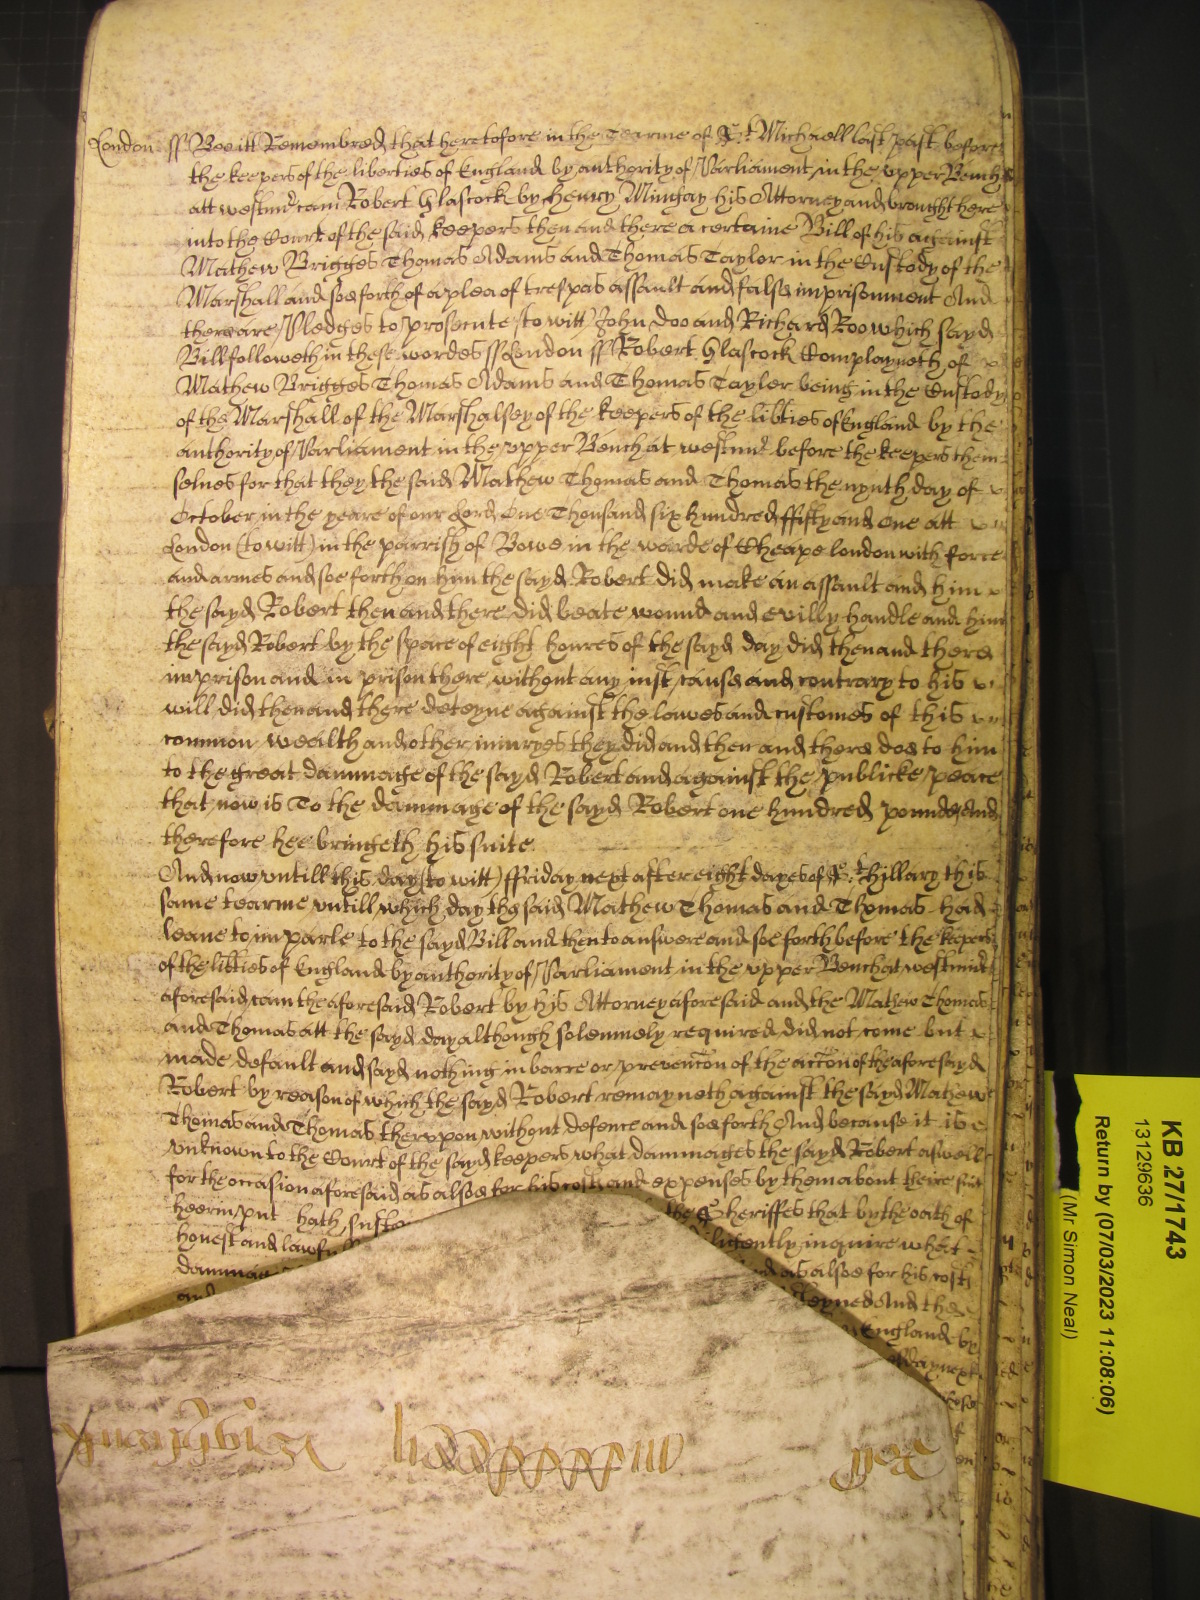 London ss Bee itt Remembred that heretofore in the Tearme of St. Michaell last past before
the keepers of the liberties of England by authority of Parliament in the upper Bench
att westmr cam Robert Glascock by Henry Mingay his Attorney and brought here
into the Court of the said keepers then and there a certaine Bill of his against
Mathew Brigges Thomas Adams and Thomas Taylor in the Custody of the
Marshall and soe forth of a plea of trespas assault and false imprisonment And
there are Pledges to prosecute (to witt) John Doo and Richard Roo which sayd
Bill followeth in these wordes ss London ss Robert Glascock Complayneth of
Mathew Brigges Thomas Adams and Thomas Taylor being in the Custody
of the Marshall of the Marshalsey of the keepers of the libties of England by the
authority of Parliament in the upper Bench at westmr before the keepers them
selves for that they the said Mathew Thomas and Thomas the nynth day of
October in the yeare of our Lord One Thousand six hundred ffifty and one att
London (to witt) in the parrish of Bowe in the warde of Cheape london with force
and armes and soe forth on him the sayd Robert did make an assault and him
the sayd Robert then and there did beate wound and evilly handle and him
the sayd Robert by the space of eight houres of the sayd day did then and there
imprison and in prison there without any iust cause and contrary to his
will did then and there deteyne against the lawes and customes of this
common wealth and other iniuryes they did and then and there doe to him
to the great dammage of the sayd Robert and against the publicke peace
that now is To the dammage of the sayd Robert one hundred pounds And
therefore hee bringeth his suite
And now untill this day (to witt) ffriday next after eight dayes of St. Hillary this
same tearme untill which day the said Mathew Thomas and Thomas had
leave to imparle to the sayd Bill and then to answere and soe forth before the keepers
of the libties of England by authority of Parliament in the upper Bench at westminr
aforesaid cam the aforesaid Robert by his Attorney aforesaid and the Mathew Thomas
and Thomas att the sayd day although solemnely required did not come but
made default and sayd nothing in barre or prevencon of the accon of the aforesayd
Robert by reason of which the sayd Robert remayneth against the sayd Mathew
Thomas and Thomas therupon without defence and soe forth And because it is
unknown to the Court of the sayd keepers what dammages the sayd Robert aswell
for the occasion aforesaid as alsoe for his costs and expenses by them about theire suit
heerin put hath suste the Sheriffes that by the oath of
honest and lawf ligently inquire what
dammag nd as alsoe for his costs
and teyned And the
England by
day next
KB 27/1743
13129636
Return by (07/03/2023 11:08:06)
(Mr Simon Neal)